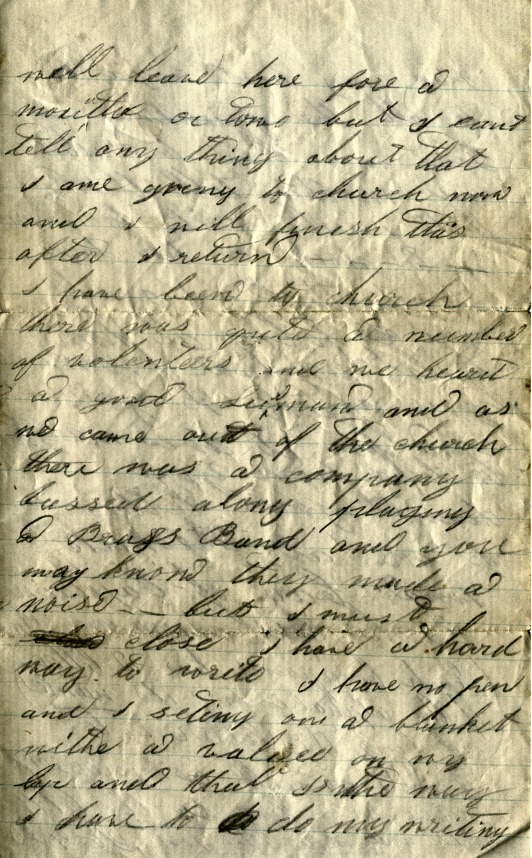 well leave here fore a
monthe or towo but I cant
tell any thing about that
I ame goeny to church now
and I will finesh this
after I return
I have been to church
there was quite a number
of volenteers and we heart
a good sermand and as
we came out of the church
there was a company
bussed along playing
a Brass Band and you
may know they made a
noise — but I must
close I have a hard
way to write I have no pen
and I seteny one a blanket
withe a valice on my
lap and that is the way
I have to do my writing